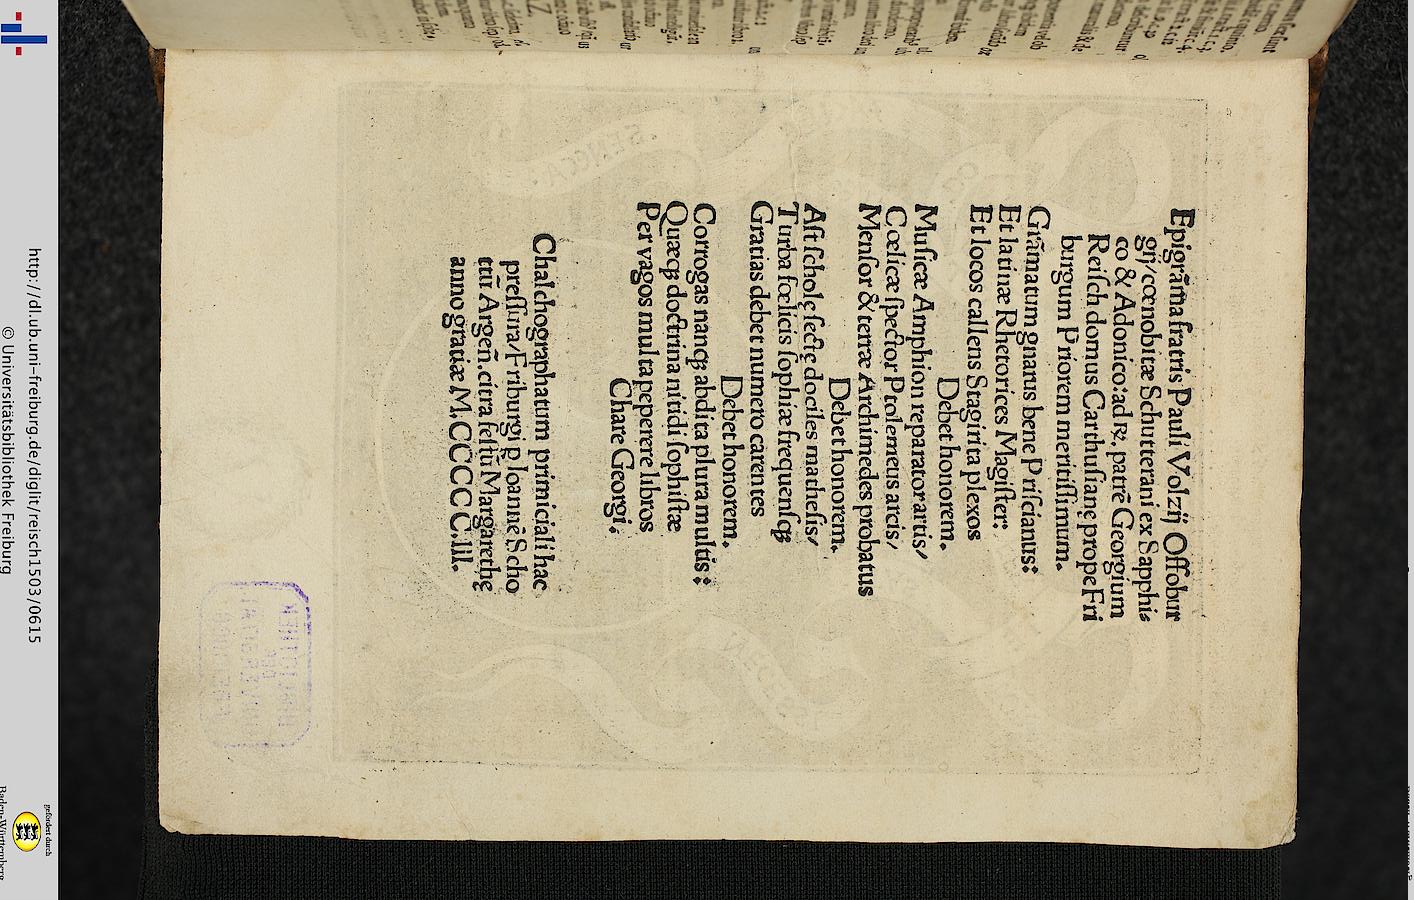 Epigrãma fratris Pauli Volzij Offobur
grj/cœnobitæ Schutterani ex Sapphi⸗
co & Adonico:ad ℞. patrẽ Georgium
Reiſch domus Carthuſianę prope Fri
burgum Priorem meritiſſimum.
Grãmatum gnarus bene Priſcianus:
Et latinæ Rhetorices Magiſter:
Et locos callens Stagirita plexos
Debet honorem.
Muſicæ Amphion reparator artis/
Cœlicæ ſpector Ptolemeus arcis/
Menſor & terræ Archimedes probatus
Debet honorem.
Aſt ſcholę ſectę dociles matheſis/
Turba fœlicis ſophiæ frequenſqꝫ
Gratias debet numero carentes
Debet honorem.
Corrogas nanqꝫ abdita plura multis:
Quæqꝫ doctrina nitidi ſophiſtæ
Per vagos multa peperere libros
Chare Georgi.
Chalchographatum primiciali hac
preſſura/Friburgi ꝑ Joannẽ Scho
ttũ Argeñ.citra feſtũ Margarethę
anno gratiæ M.CCCCC.III.
SENECA
http://dl.ub.uni-freiburg.de/diglit/reisch1503/0615
© Universitätsbibliothek Freiburg
gefördert durch
Baden-Württemberg